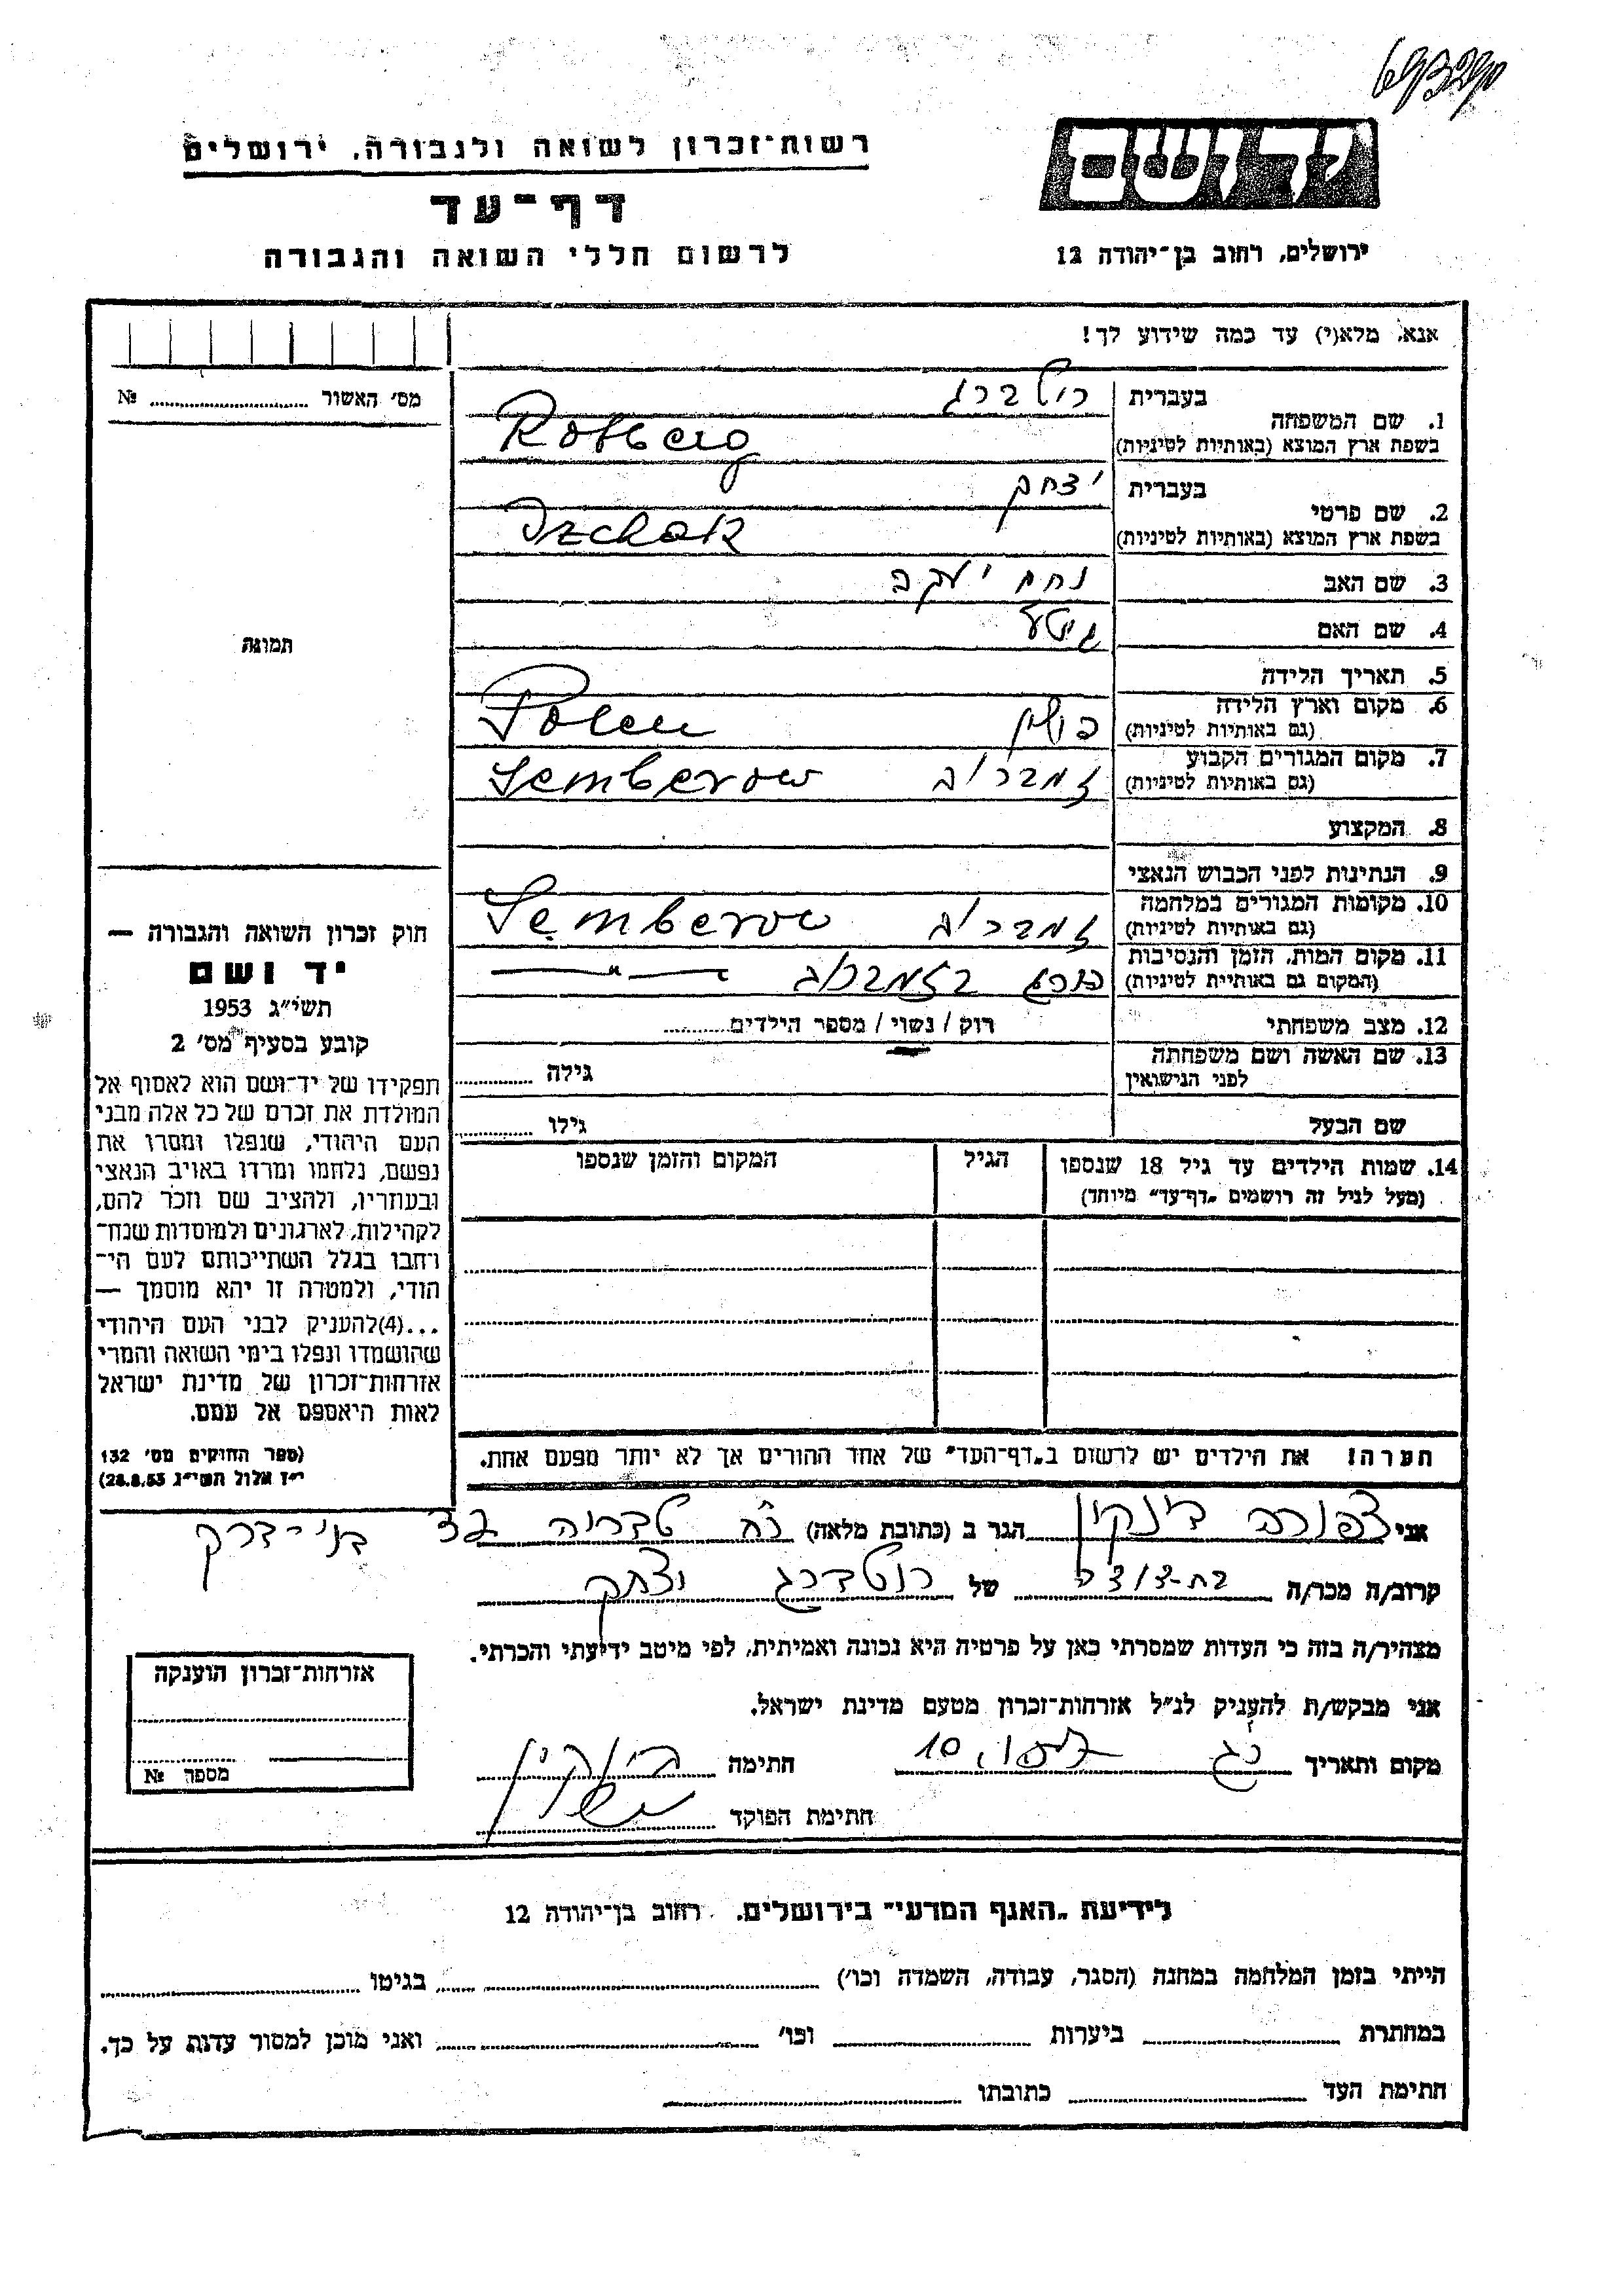 יד ושם
ירושלים, רחוב בן־יהודה 12
רשות־זכרון לשואה ולגבורה, ירושלים
דף־עד
לרשום חללי השואה והגבורה
אנא, מלא(י) עד כמה שידוע לך!
מס׳ האשור № 
1. שם המשפחה בעברית רוטברג
בשפת ארץ המוצא (באותיות לטיניות) Rotberg
2. שם פרטי בעברית יצחק
בשפת ארץ המוצא (באותיות לטיניות) Izchak
3. שם האב נחם יעקב
4. שם האם גיטל
5. תאריך הלידה
6. מקום וארץ הלידה פולין Polen
(גם באותיות לטיניות)
7. מקום המגורים הקבוע זמברוב Semberow
(גם באותיות לטיניות)
8. המקצוע
9. הנתינות לפני הכבוש הנאצי
10. מקומות המגורים במלחמה זמברוב Semberow
(גם באותיות לטיניות)
11. מקום המות, הזמן והנסיבות בזמברוב — " —
(המקום גם באותיות לטיניות)
12. מצב משפחתי רוק / נשוי / מספר הילדים
13. שם האשה ושם משפחתה גילה
לפני הנישואין
שם הבעל גילו
14. שמות הילדים עד גיל 18 שנספו הגיל המקום והזמן שנספו
(מעל לגיל זה רושמים „דף־עד״ מיוחד)
הערה! את הילדים יש לרשום ב„דף־העד״ של אחד ההורים אך לא יותר מפעם אחת.
תמונה
חוק זכרון השואה והגבורה —
יד ושם
תשי״ג 1953
קובע בסעיף מס׳ 2
תפקידו של יד־ושם הוא לאסוף אל
המולדת את זכרם של כל אלה מבני
העם היהודי, שנפלו ומסרו את
נפשם, נלחמו ומרדו באויב הנאצי
ובעוזריו, ולהציב שם וזכר להם,
לקהילות, לארגונים ולמוסדות שנח־
רחבו בגלל השתייכותם לעם הי־
הודי, ולמטרה זו יהא מוסמך —
...(4)להעניק לבני העם היהודי
שהושמדו ונפלו בימי השואה והמרי
אזרחות־זכרון של מדינת ישראל
לאות היאספם אל עמם.
(ספר החוקים מס׳ 132
י״ז אלול תשי״ג 28.8.53)
אני צפורה הגר ב (כתובת מלאה) רח טבריה בני-ברק
קרוב/ה מכר/ה בת-דודה של רוטברג יצחק
מצהיר/ה בזה כי העדות שמסרתי כאן על פרטיה היא נכונה ואמיתית, לפי מיטב ידיעתי והכרתי.
אני מבקש/ת להעניק לנ״ל אזרחות־זכרון מטעם מדינת ישראל.
מקום ותאריך חתימה
חתימת הפוקד
אזרחות־זכרון הוענקה
מספר №
לידיעת „האגף המדעי״ בירושלים, רחוב בן־יהודה 12
הייתי בזמן המלחמה במחנה (הסגר, עבודה, השמדה וכו׳) בגיטו
במחתרת ביערות וכו׳ ואני מוכן למסור עדות על כך.
חתימת העד כתובתו